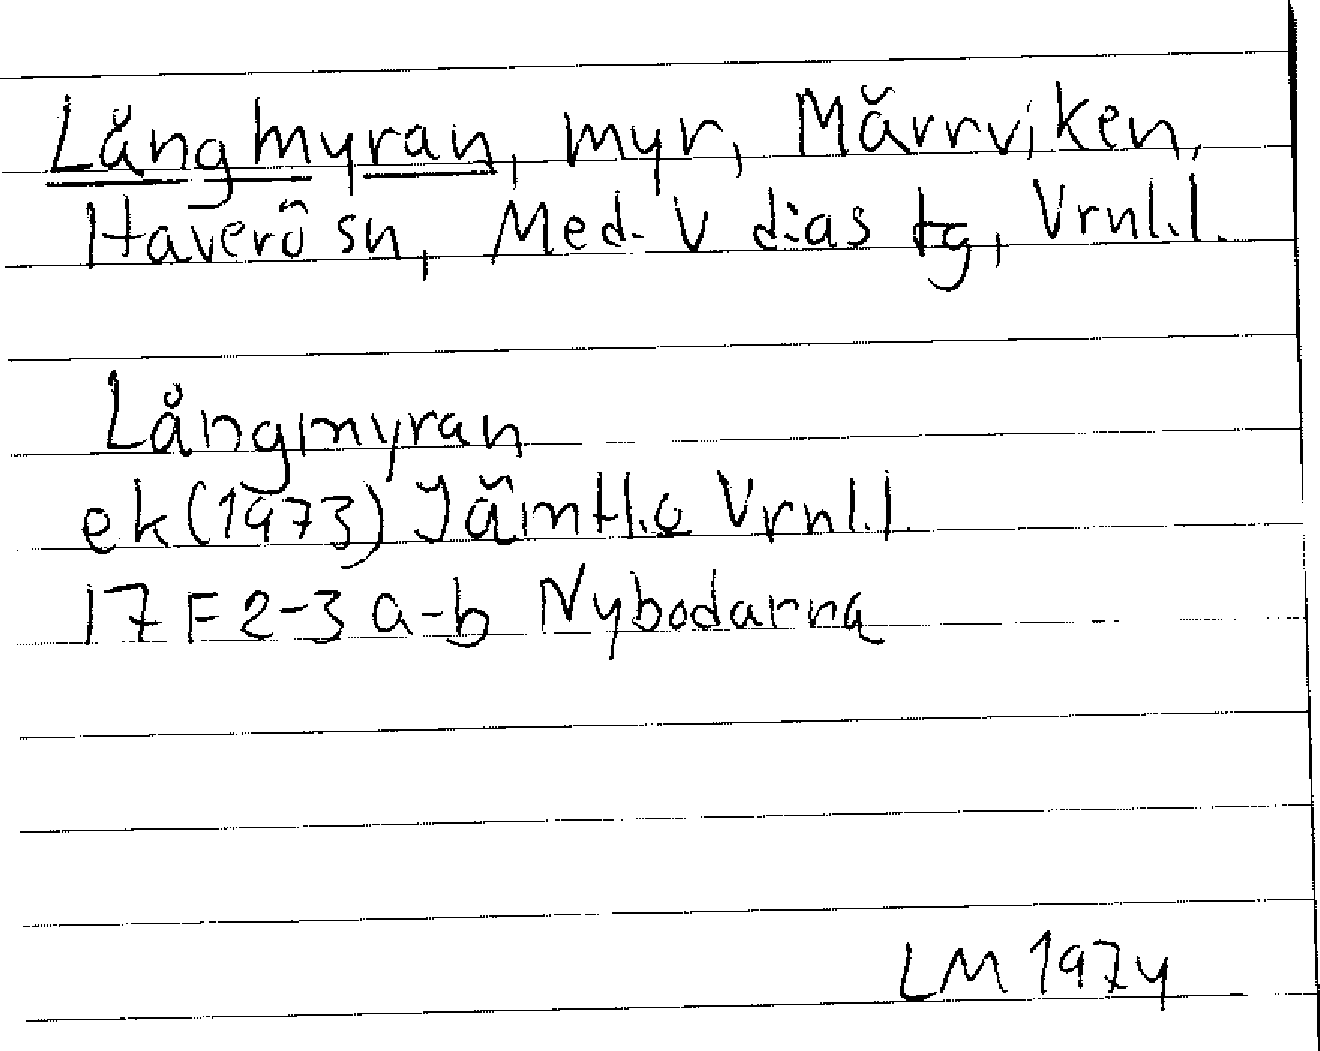 Långmyran, myr, Märrviken,
Haverö sn, Med. V diss tg, Vrnl.l.
Långmyran
ek (1973) Jämtl. o Vrnl.l.
17 F 2-3 a-b Nybodarna
LM 1974